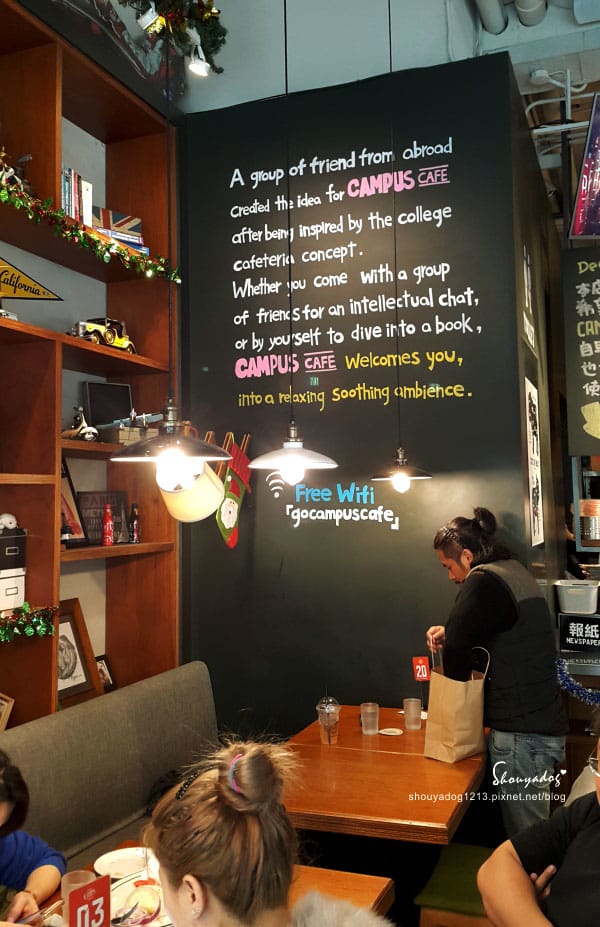 A group of friend from abroad
created the idea for CAMPUS CAFE
after being inspired by the college
cafeteria concept.
Whether you come with a group
of friends for an intellectual chat,
or by yourself to dive into a book,
CAMPUS CAFE Welcomes you,
into a relaxing soothing ambience.
Free Wifi
「gocampuscafe」
California
20
報紙
NEWSPAPER
03
Shouyadog
shouyadog1213.pixnet.net/blog